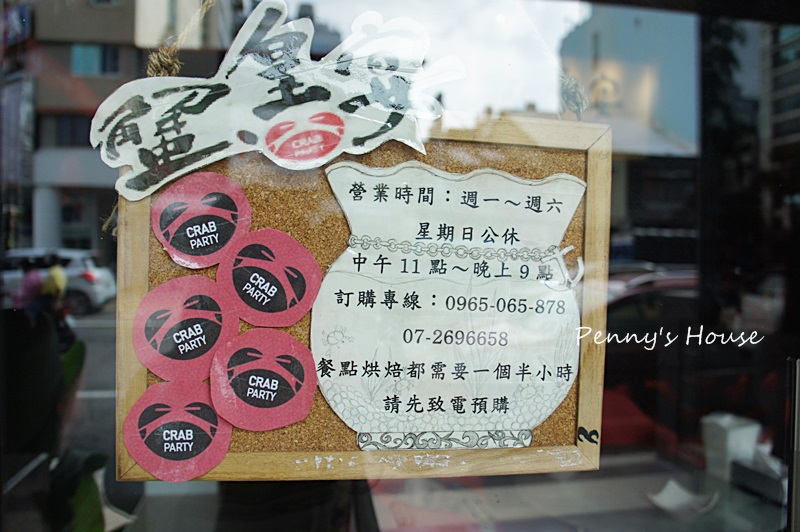 蟹皇灣
CRAB
PARTY
營業時間：週一～週六
星期日公休
中午11點～晚上9點
訂購專線：0965-065-878
07-2696658
餐點烘焙都需要一個半小時
請先致電預購
CRAB
PARTY
CRAB
PARTY
CRAB
PARTY
CRAB
PARTY
CRAB
PARTY
Penny's House